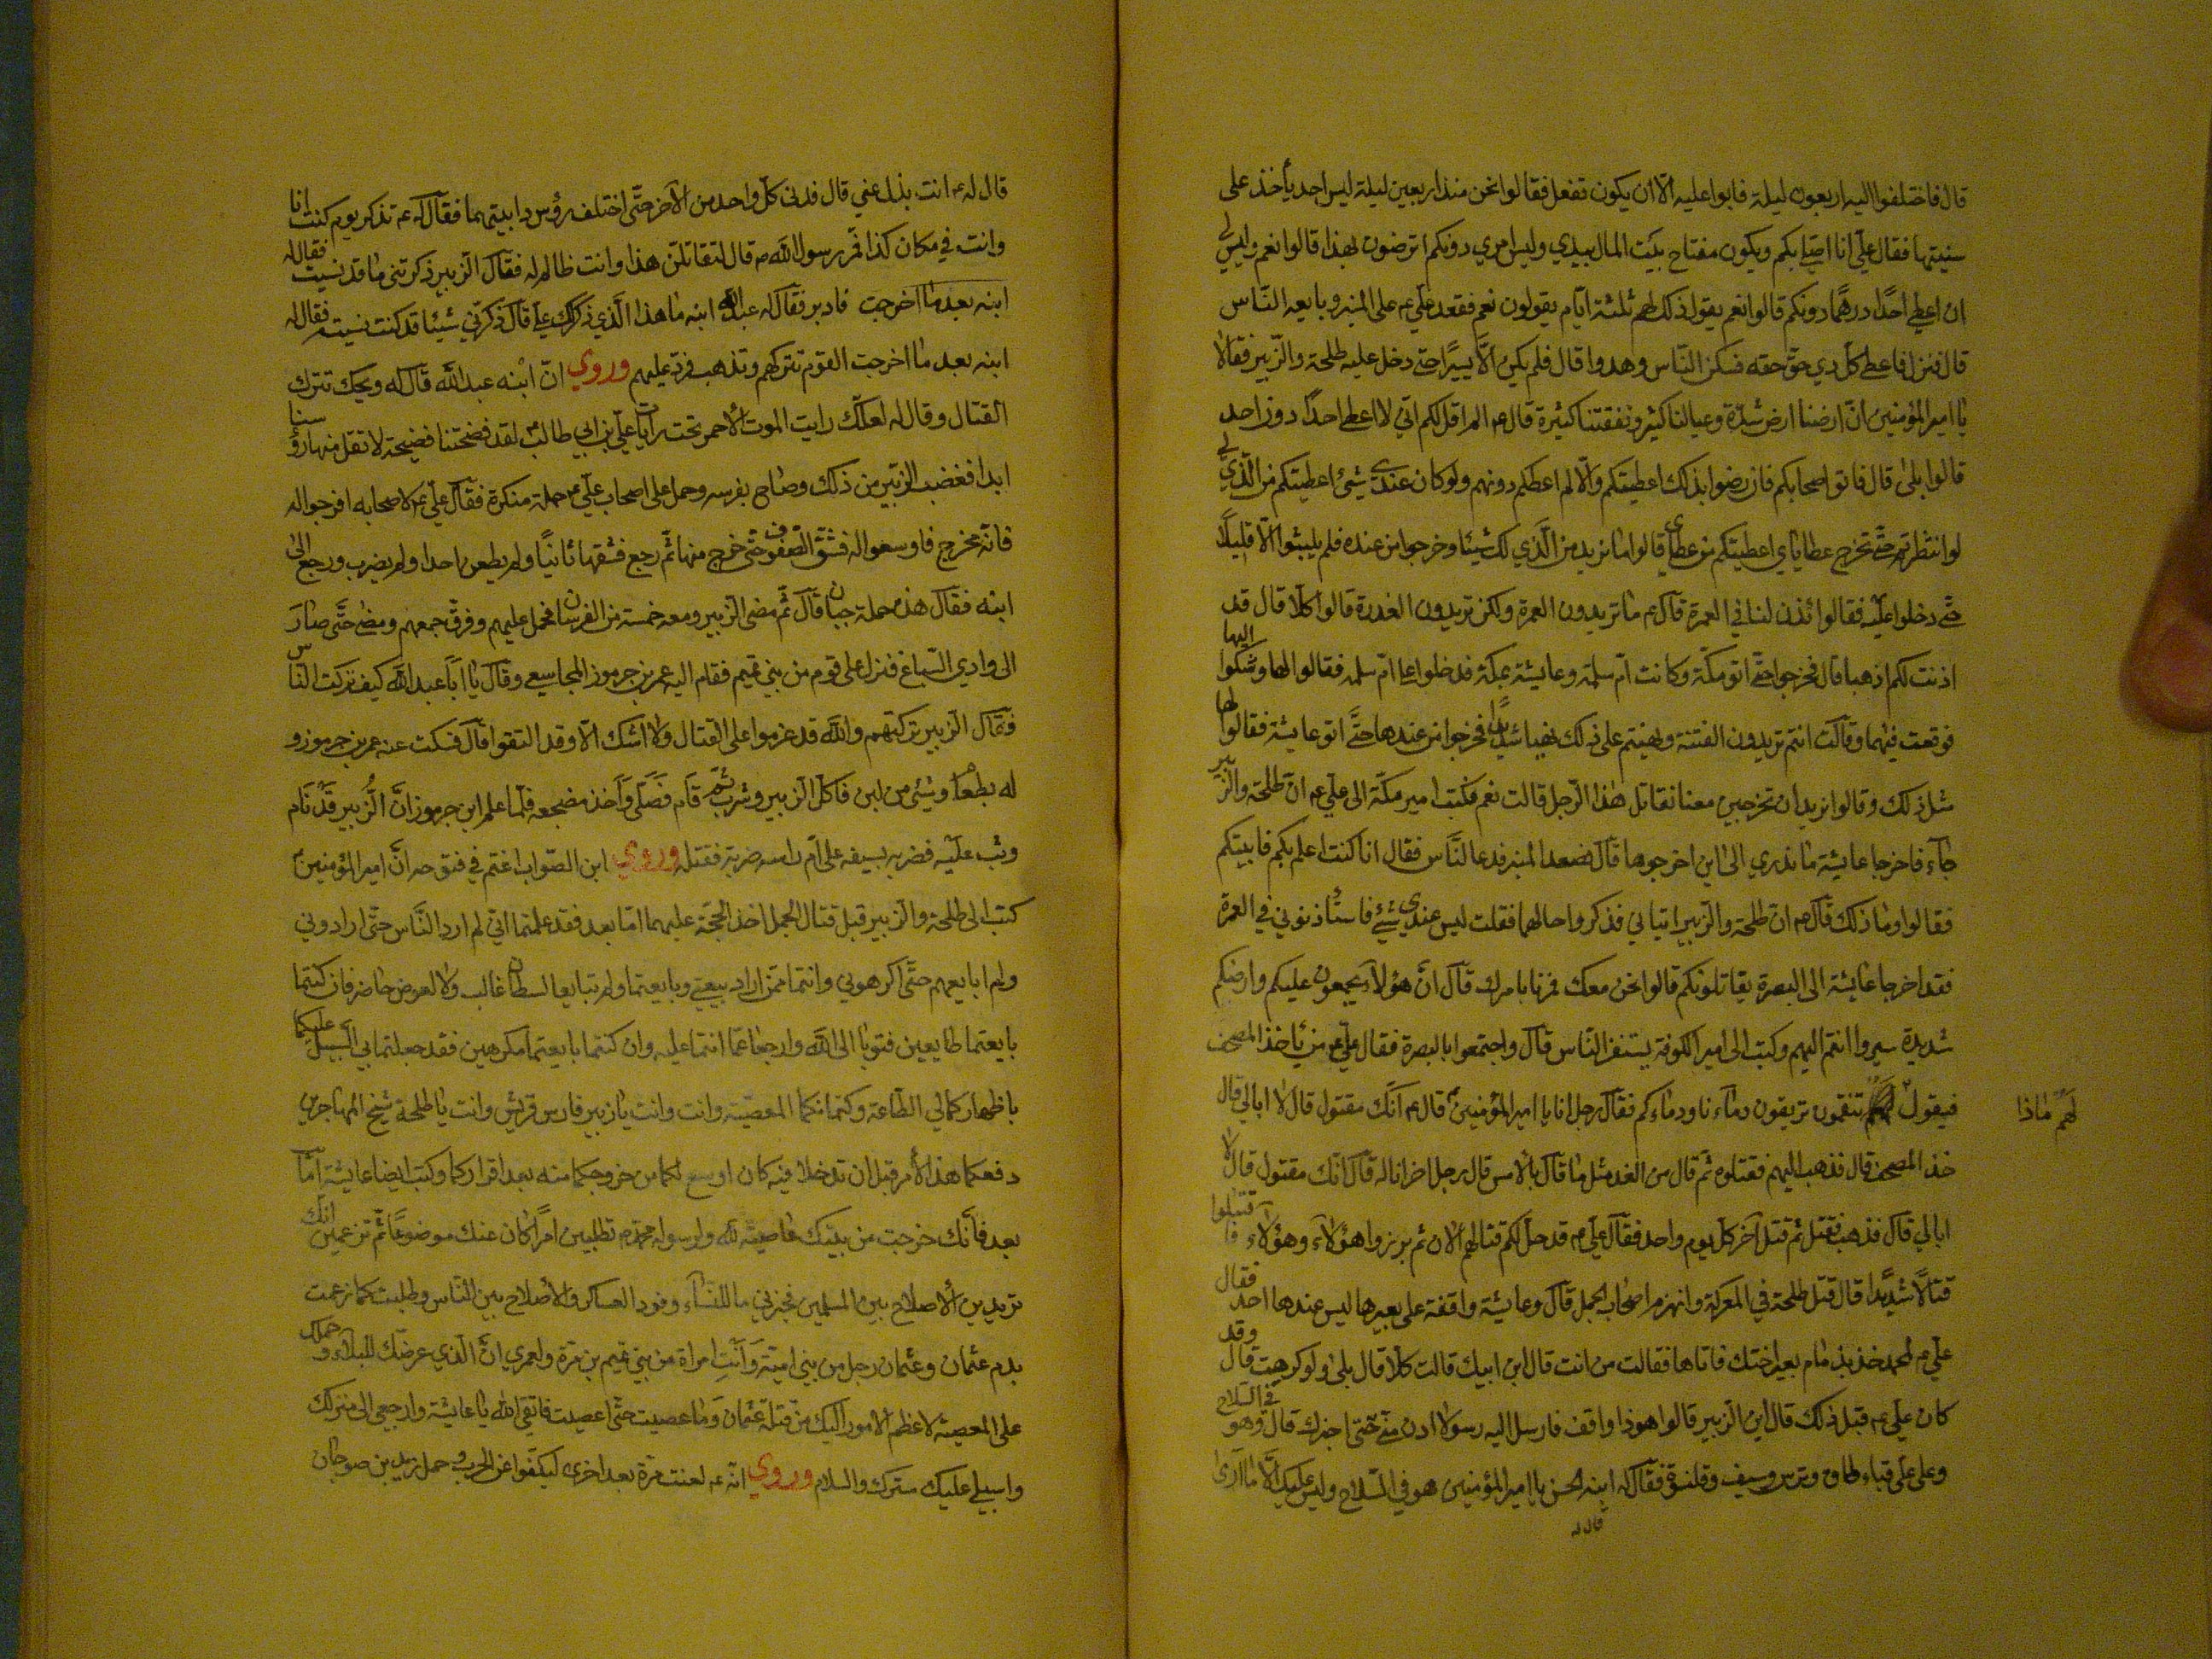 قال فاختلفوا اليه اربعون ليلة فابوا عليه الّا ان يكون تفعل فقالوا نحن منذ اربعين ليلة ليس احد يأخذ على
سنيتها فقال علي انا اصيّا بكم ويكون مفتاح بيت المال بيدي وليس امري دونكم اترضون بهذا قالوا نعم وليس لي
ان اعطي احدًا درهمًا دونكم قالوا نعم يقول ذلك لهم ثلثة ايّام يقولون نعم فقعد عليّ ع على المنبر وبايعه النّاس
قال فنزل فاعطى كل ذي حقّ حقه فسكن النّاس وهدوا قال فلم يكن الّا يسيرًا حتّى دخل عليه طلحة والزّبير فقالا
يا امير المؤمنين انّ ارضنا ارض شدّة وعيالنا كثير ونفقتنا كثيرة قال ع الم اقل لكم انّي لا اعطي احدًا دون احد
قالوا بلى قال فاتوا اصحابكم فان رضوا بذلك اعطيتكم والّا لم اعطكم دونهم ولو كان عندي شيئ اعطيتكم من الّذي لي
لو انتظرتم حتّى تخرج عطاياي اعطيتكم من عطاي قالوا ما نريد من الّذي لك شيئا وخرجوا من عنده فلم يلبثوا الّا قليلًا
حتّى دخلوا عليه فقالوا ائذن لنا في العمرة قال ع ما تريدون العمرة ولكن تريدون الغدرة قالوا كلّا قال قد
اذنت لكم اذهبا قال فخرجوا حتّى اتو مكّة وكانت امّ سلمة وعايشة بمكة فدخلوا على امّ سلمه فقالوا لها وشكوا اليها
فوقعت فيهما وقالت انتم تريدون الفتنة ونهيتم على ذلك نهيا شديدًا فخرجوا من عندها حتّى اتو عايشة فقالوا لها
مثل ذلك وقالوا نريد ان تخرجين معنا نقاتل هذا الرّجل قالت نعم فكتب امير مكّة الى علي ع ان طلحة والزّبير
جآء فاخرجا عايشة ما ندري الى اين اخرجوها قال فصعد المنبر فدعا النّاس فقال انا كنت اعلم بكم فابيتكم
فقالوا وما ذلك قال ع ان طلحة والزّبير اتياني فذكروا حالهما فقلت ليس عندي شيئ فاستأذنوني في العمرة
فقد اخرجا عايشة الى البصرة يقاتلونكم قالوا نحن معك فمرنا بامرك قال انّ هؤلاء يجمعون عليكم وارضكم
شديدة سيروا انتم اليهم وكتب الى امير الكوفة يستنفر النّاس قال واجتمعوا بالبصرة فقال عليّ ع من يأخذ المصحف
فيقول لهم ماذا تنقمون تريقون دمآءنا ودماءكم فقال رجل انا يا امير المؤمنين قال ع انّك مقتول قال لا ابالي قال
خذ المصحف قال فذهب اليهم فقتلوه ثم قال من الغد مثل ما قال بالامس قال رجل اخر انا له قال انّك مقتول قال لا
ابالي قال فذهب فقتل ثم قتل آخر كلّ يوم واحد فقال عليّ ع قد حلّ لكم قتالهم الان ثم برزوا هؤلاء وهؤلاء فاقتتلوا
قتالًا شديدًا قال قتل طلحة في المعركة وانهزم اصحاب الجمل قال وعايشة واقفة على بعيرها ليس عندها احد فقال
علي ع لمحمد خذ بزمام بعير اختك فاتاها فقالت من انت قال ابن ابيك قالت كلّا قال بلى ولو كرهت قال وقد
كان علي ع قبل ذلك قال اين الزبير قالوا هوذا واقف فارسل اليه رسولا ادن منّي حتى اخبرك قال وهو في السلاح
وعلى علي قباء طاق وترس وسيف وقلنسوة فقال له ابنه الحسن يا امير المؤمنين هو في السّلاح وليس عليك الّا ما ارى
قال له
قال له ع انت بذا عني قال فدنى كلّ واحد من الآخر حتّى اختلف رؤس دابيتهما فقال له ع تذكر يوم كنت انا
وانت في مكان كذا فمر رسول الله ص قال لتقاتلن هذا وانت ظالم له فقال الزبير ذكرتني ما قد نسيت فقال له
ابنه بعد ما اخرجت فادبر فقال له عبد الله ابنه ما هذا الّذي ذكرك علي قال ذكرني شيئا قد كنت نسيته فقال له
ابنه بعد ما اخرجت القوم تتركهم وتذهب فردّ عليهم وروي انّ ابنه عبد الله قال له ويحك تترك
القتال وقال له لعلّك رايت الموت الاحمر تحت رايات علي بن ابي طالب لقد فضحتنا فضيحة لا تغسل منها رؤسنا
ابدا فغضب الزبير من ذلك وصاح بفرسه وحمل على اصحاب عليّ ع حملة منكرة فقال علي ع لاصحابه افرجوا له
فانّه مخرج فاوسعوا له فشقّ الصّفوف حتّى خرج منها ثم رجع فشقها ثانيًا ولم يطعن احدا ولم يضرب ورجع الى
ابنه فقال هذه حملة جبان قال ثم مضى الزبير ومعه خمسة من الفرسان فحمل عليهم وفرق جمعهم ومضى حتّى صار
الى وادي السّباع فنزل على قوم من بني تميم فقام اليه عمر بن جرموز المجاسعي وقال يا ابا عبد الله كيف تركت النّاس
فقال الزبير تركتهم والله قد عزموا على القتال ولا اشك الّا وقد التقوا قال فسكت عنه عمر بن جرموز و
له بطعام وشيئ من لبن فاكل الزبير وشرب ثم قام فصلّى واخذ مضجعه فلما علم ابن جرموز انّ الزّبير قد نام
وثب عليه فضربه بسيفه على امّ راسه ضربة فقتله وروي ابن الصّواب اعثم في فتوحه انّ امير المؤمنين
كتب الى طلحة والزبير قبل قتال الجمل اخذ الحجّة عليهما امّا بعد فقد علمتما انّي لم ارد النّاس حتّى ارادوني
ولم ابايعهم حتّى اكرهوني وانتما ممّن اراد بيعتي وبايعتما ولم تبايعا لسلطان غالب ولا لعرض حاضر فان كنتما
بايعتما طايعين فتوبا الى الله وارجعا عمّا انتما عليه وان كنتما بايعتما مكرهين فقد جعلتما لي السّبيل عليكما
باظهاركما لي الطّاعة وكتمانكما المعصية وانت يا زبير فارس قريش وانت يا طلحة شيخ المهاجرين
دفعكما هذا الأمر قبل ان تدخلا فيه كان اوسع لكما من خروجكما منه بعد اقراركما وكتب ايضا عايشة امّا
بعد فانّك خرجت من بيتك عاصية لله ولرسوله محمد ص تطلبين امرًا كان عنك موضوعًا ثم تزعمين انّك
تريدين الاصلاح بين المسلمين فخبريني ما للنّساء وقود العساكر والأصلاح بين النّاس وطلبت كما زعمت
بدم عثمان وعثمان رجل من بني امية وانت امراة من بني تميم بن مرة ولعمري انّ الّذي عرضك للبلاء وحملك
على المعصية لاعظم الأمور اليك من قتلة عثمان وما عصيت حتّى اعصيت فاتقي الله يا عايشة وارجعي الى منزلك
واسبلي عليك سترك والسلام وروي انّه ع لعنت مرة بعد اخرى ليكفوا عن الحرب وحمل زيد بن صوحان